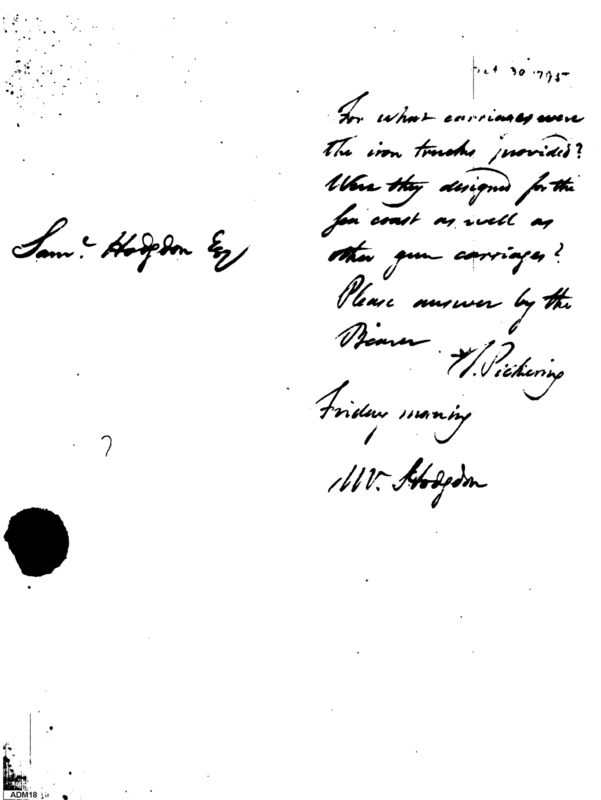 Oct 30 1795
For what carriages were
the iron trucks provided?
Were they designed for the
sea coast as well as
other gun carriages?
Please answer by the
Bearer
T. Pickering
Friday morning
Mr. Hodgdon
Saml. Hodgdon Esq
ADM18